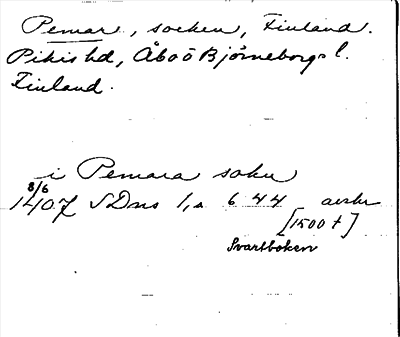 Pemar, socken, Finland.
Pikis hd, Åbo o Bjørneborgs l.
Finland.
i Pemara sokn
8/6
1407 SDns 1, s 644 avskr
[1500 t]
Svartboken